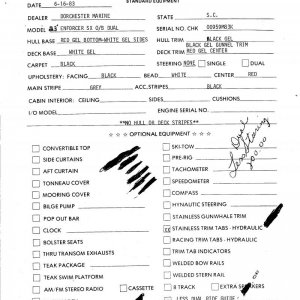 STANDARD EQUIPMENT
DATE 6-16-83
DEALER DORCHESTER MARINE STATE S.C.
MODEL ENFORCER SX O/B DUAL SERIAL NO. CHK
HULL BASE RED GEL BOTTOM-WHITE GEL SIDES HULL TRIM BLACK GEL
BLACK GEL GUNNEL TRIM
DECK BASE WHITE GEL DECK TRIM RED GEL CENTER
CARPET BLACK STEERING NONE SINGLE DUAL
UPHOLSTERY: FACING BLACK BEAD WHITE CENTER RED
MAIN STRIPE GREY ACC. STRIPES BLACK
CABIN INTERIOR: CEILING SIDES CUSHIONS
I/O MODEL ENGINE SERIAL NO.
**NO HULL OR DECK STRIPES**
☆☆ OPTIONAL EQUIPMENT ☆☆
CONVERTIBLE TOP
SIDE CURTAINS
AFT CURTAIN
TONNEAU COVER
MOORING COVER
BILGE PUMP
POP OUT BAR
CLOCK
BOLSTER SEATS
THRU TRANSOM EXHAUSTS
TEAK PACKAGE
TEAK SWIM PLATFORM
AM/FM STEREO RADIO CASSETTE
SKI-TOW
PRE-RIG
TACHOMETER
SPEEDOMETER
COMPASS
HYNAUTIC STEERING
STAINLESS GUNWHALE TRIM
STAINLESS TRIM TABS - HYDRAULIC
RACING TRIM TABS - HYDRAULIC
TRIM TAB INDICATORS
WELDED BOW RAILS
WELDED STERN RAIL
8 TRACK EXTRA SPEAKERS
LESS DUAL RIDE GUIDE -
Dual
Less Steering